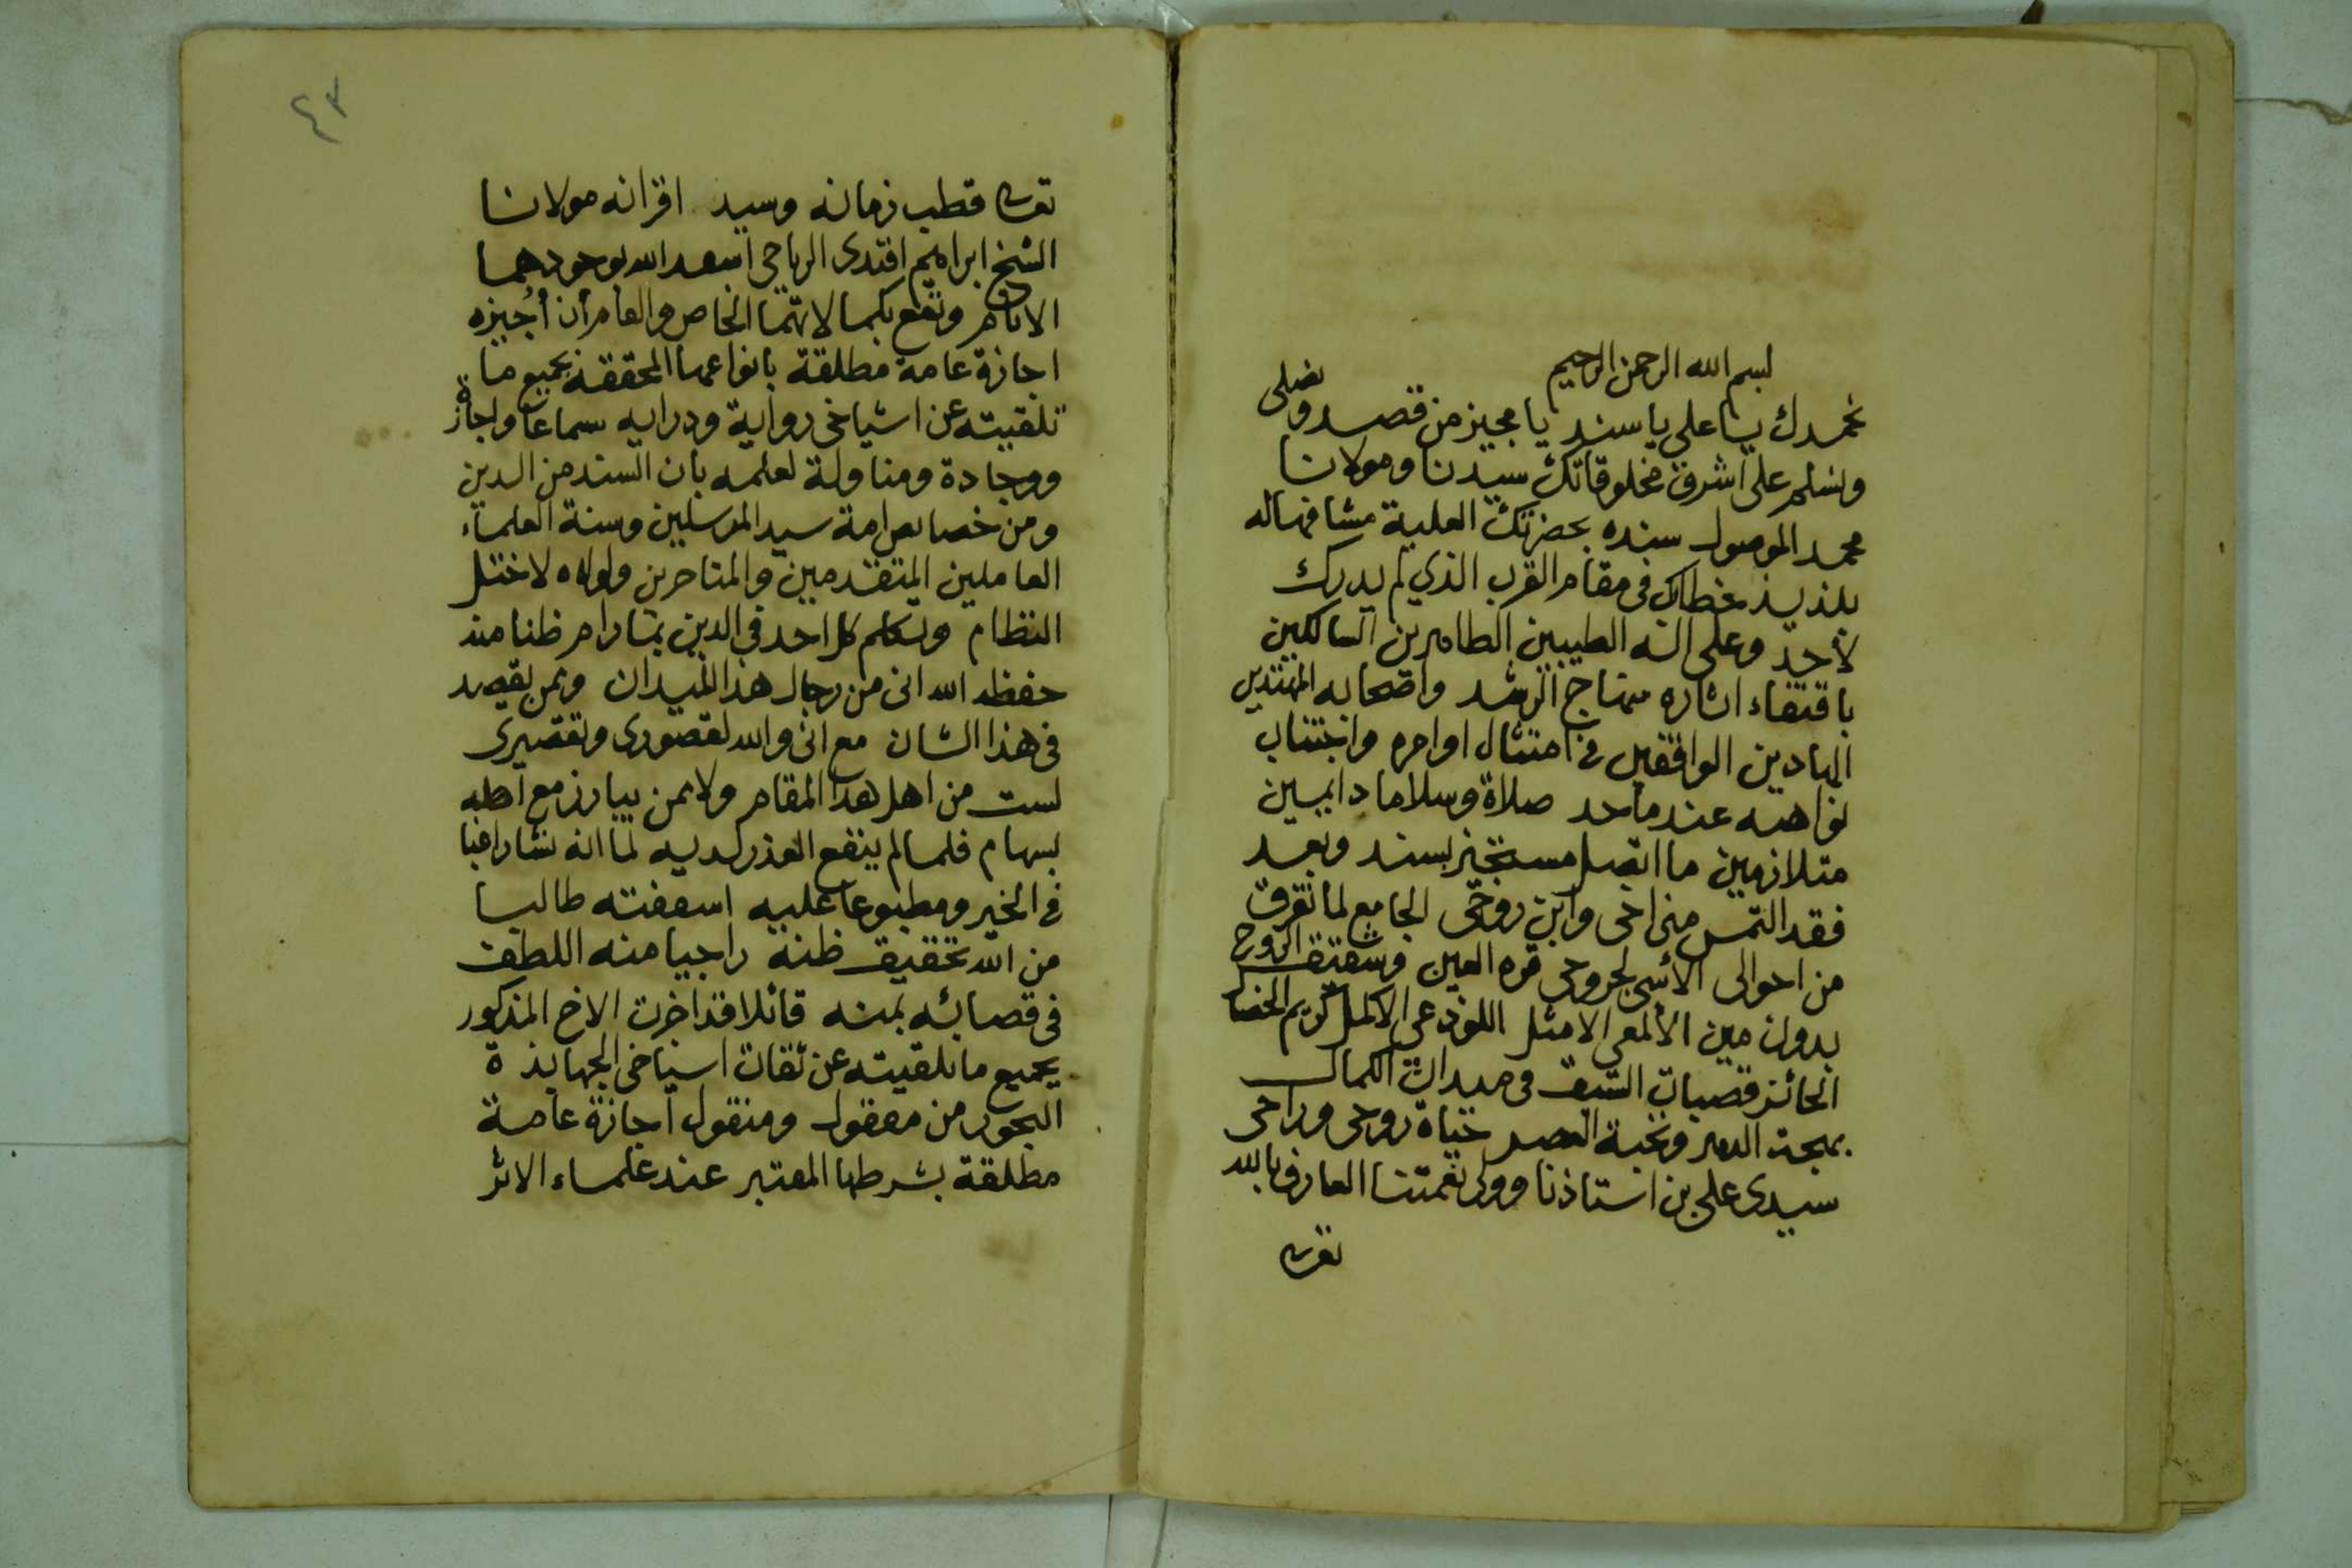 بسم الله الرحمن الرحيم
نحمدك يا على يا سند يا مجيز من قصد ونصلى
ونسلم على اشرف مخلوقاتك سيدنا ومولانا
محمد الموصول سنده بحضرتك العلية مشافها له
بلذيذ خطابك فى مقام القرب الذي لم يدرك
لأحد وعلى اله الطيبين الطاهرين السالكين
باقتفاء اثاره منهاج الرشد واصحابه المهتدين
الهادين الواقفين فى امتثال اوامره واجتناب
نواهيه عند ما حد صلاة وسلاما دايمين
متلازمين ما اتصل مستجيز بسند وبعد
فقد التمس منى اخى وابن روحى الجامع لما تفرق
من احوالى الأسى لجروحى قرة العين وشقيق الروح
بدون مين الألمعى الامثل اللوذعى الاكمل كريم الخصال
الحائز قصبات السبق فى ميدان الكمال
بهجة الدهر ونخبة العصر حياة روحى وراحى
سيدى على بن استاذنا وولى نعمتنا العارف بالله
تعالى
٤٣
تعالى قطب زمانه وسيد اقرانه مولانا
الشيخ ابراهيم افندى الرياحى اسعد الله بوجودهما
الانام ونفع بكمالاتهما الخاص والعام أن أُجيزه
اجازة عامة مطلقة بانواعها المحققة بجميع ما
تلقيته عن اشياخى رواية ودراية سماعا واجازة
ووجادة ومناولة لعلمه بان السند من الدين
ومن خصايص امة سيد المرسلين وسنة العلماء
العاملين المتقدمين والمتاخرين ولولاه لاختل
النظام وتكلم كل احد فى الدين بما رام ظنا منه
حفظه الله انى من رجال هذا الميدان وممن يقصد
فى هذا الشان مع انى والله لقصورى وتقصيرى
لست من اهل هذا المقام ولا ممن يبارز مع اهله
بسهام فلما لم ينفع العذر لديه لما انه نشا راغبا
فى الخير ومطبوعا عليه اسعفته طالبا
من الله تحقيق ظنه راجيا منه اللطف
فى قضائه بمنه قائلا قد اجزت الاخ المذكور
بجميع ما تلقيته عن ثقات اشياخى الجهابذة
البحور من معقول ومنقول اجازة عامة
مطلقة بشرطها المعتبر عند علماء الاثر